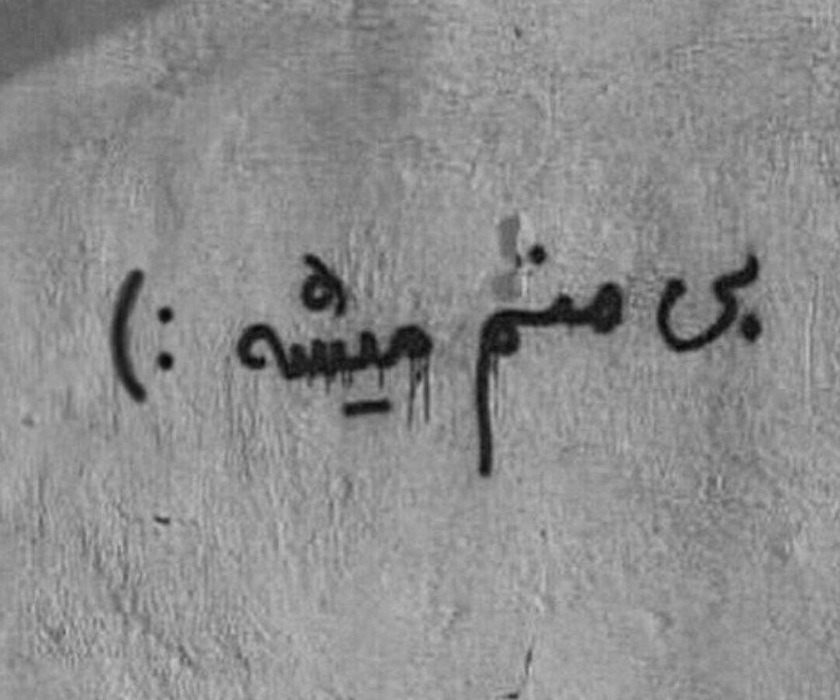 بی منم میشه :(